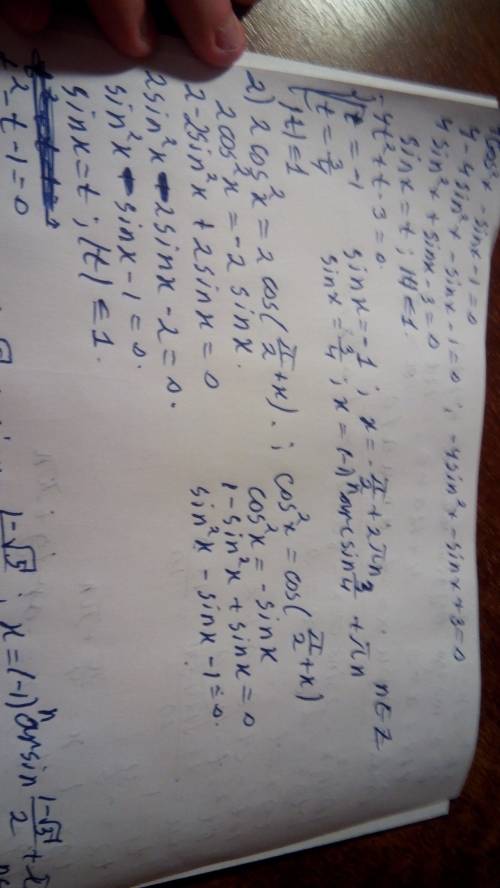 cos²x - sinx - 1 = 0
4 - 4sin²x - sinx - 1 = 0 ; -4sin²x - sinx + 3 = 0
4sin²x + sinx - 3 = 0
sinx = t ; |t| ≤ 1.
4t² + t - 3 = 0.
t = -1
t = 3/4
|t| ≤ 1
sinx = -1 ; x = -π/2 + 2πn
sinx = 3/4 ; x = (-1)ⁿ arcsin 3/4 + πn
n ∈ Z
2) 2cos²x = 2cos(π/2 + x). ; cos²x = cos(π/2 + x)
2cos²x = -2sinx. cos²x = -sinx
2 - 2sin²x + 2sinx = 0 1 - sin²x + sinx = 0
2sin²x - 2sinx - 2 = 0. sin²x - sinx - 1 = 0.
sin²x - sinx - 1 = 0.
sinx = t ; |t| ≤ 1.
t² - t - 1 = 0
1-√5 ; x = (-1)ⁿ arcsin (1-√5)/2 +